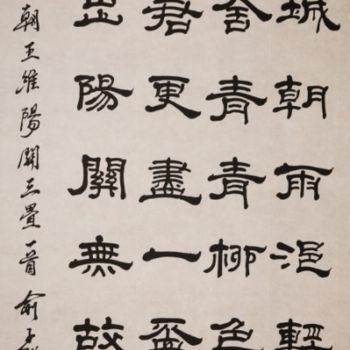 城朝雨浥輕
舍青青柳色
君更盡一盃
出陽關無故
朝王維陽關三疊一首俞子